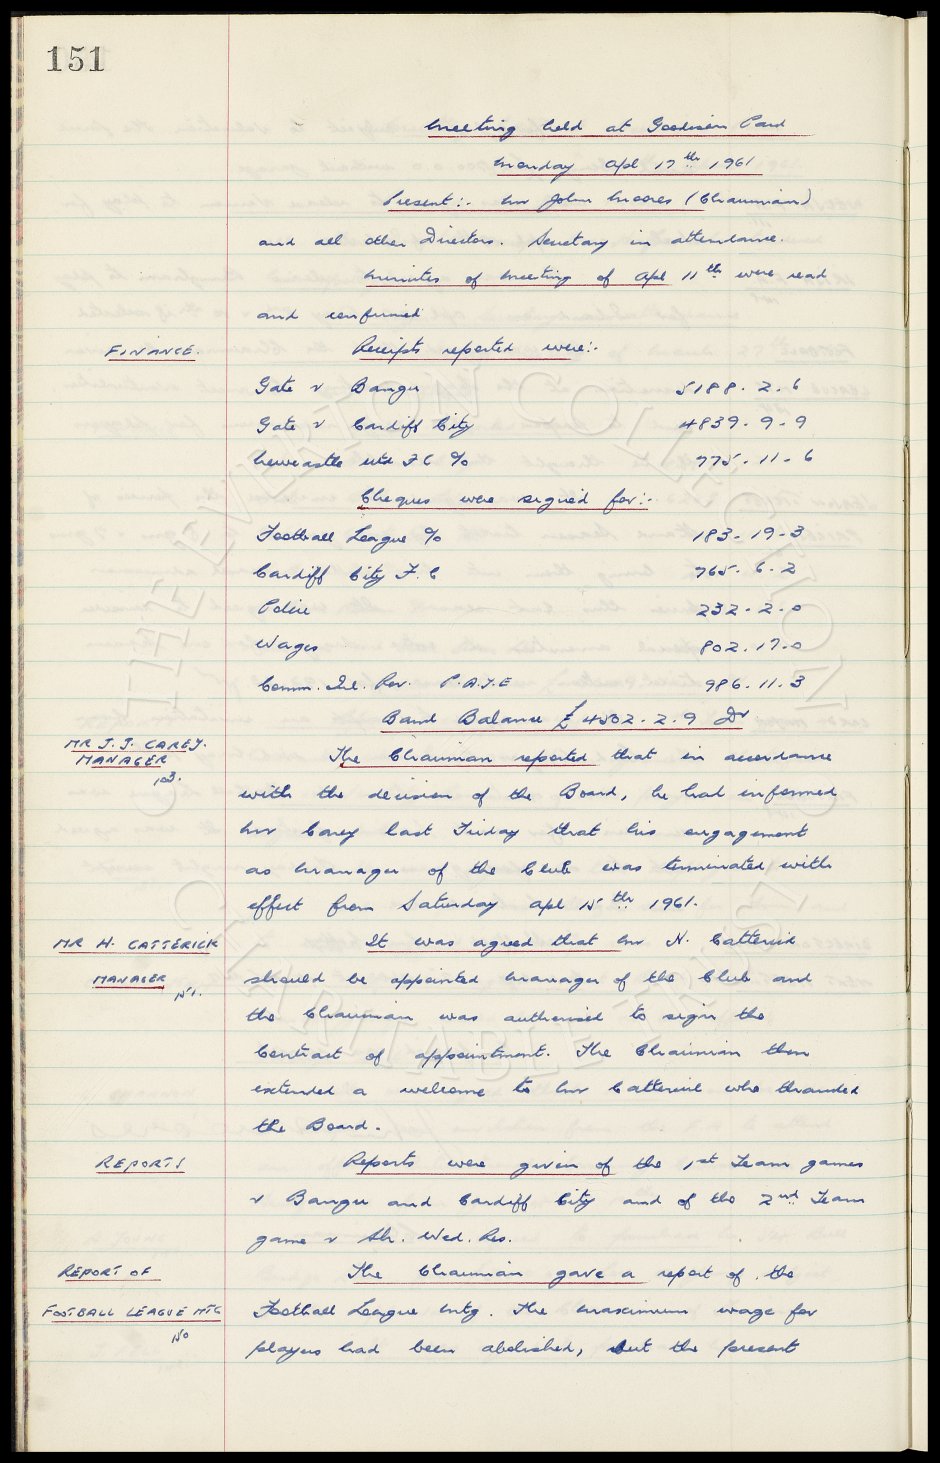 151
Meeting held at Goodison Park
Monday Apl 17th 1961
Present:- Mr John Moores (Chairman)
and all other Directors. Secretary in attendance.
Minutes of Meeting of Apl 11th were read
and confirmed
FINANCE. Receipts reported were:-
Gate v Bangu 5188 - 2 - 6
Gate v Cardiff City 4839 - 9 - 9
Newcastle Utd F C % 775 - 11 - 6
Cheques were signed for:-
Football League % 183 - 19 - 3
Cardiff City F. C 765 - 6 - 2
Police 232 - 2 - 0
Wages 802 - 17 - 0
Comm. Inl. Rev. P.A.Y.E 986 - 11 - 3
Bank Balance £4502 - 2 - 9 Dr
MR J. J. CAREY. The Chairman reported that in accordance
MANAGER
103.
with the decision of the Board, he had informed
Mr Carey last Friday that his engagement
as Manager of the Club was terminated with
effect from Saturday Apl 15th 1961.
MR H. CATTERICK It was agreed that Mr H. Catterick
MANAGER should be appointed Manager of the Club and
151.
the Chairman was authorised to sign the
Contract of appointment. The Chairman then
extended a welcome to Mr Catterick who thanked
the Board.
REPORTS Reports were given of the 1st Team games
v Bangu and Cardiff City and of the 2nd Team
game v Sh. Wed. Res.
REPORT OF The Chairman gave a report of the
FOOTBALL LEAGUE MTG Football League Mtg. The maximum wage for
150
players had been abolished, but the present
THE EVERTON COLLECTION
CHARITABLE TRUST